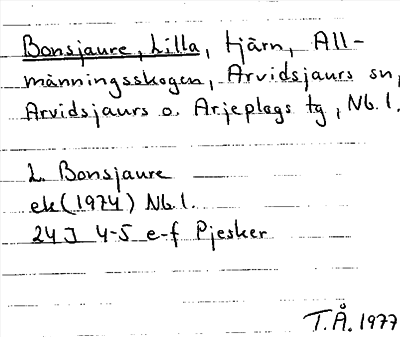 Bonsjaure, Lilla, tjärn, All-
männingsskogen, Arvidsjaurs sn,
Arvidsjaurs o. Arjeplogs tg, Nb. l.
L. Bonsjaure
ek (1974) Nb. l.
24J 4-5 e-f Pjesker
T.Å. 1977